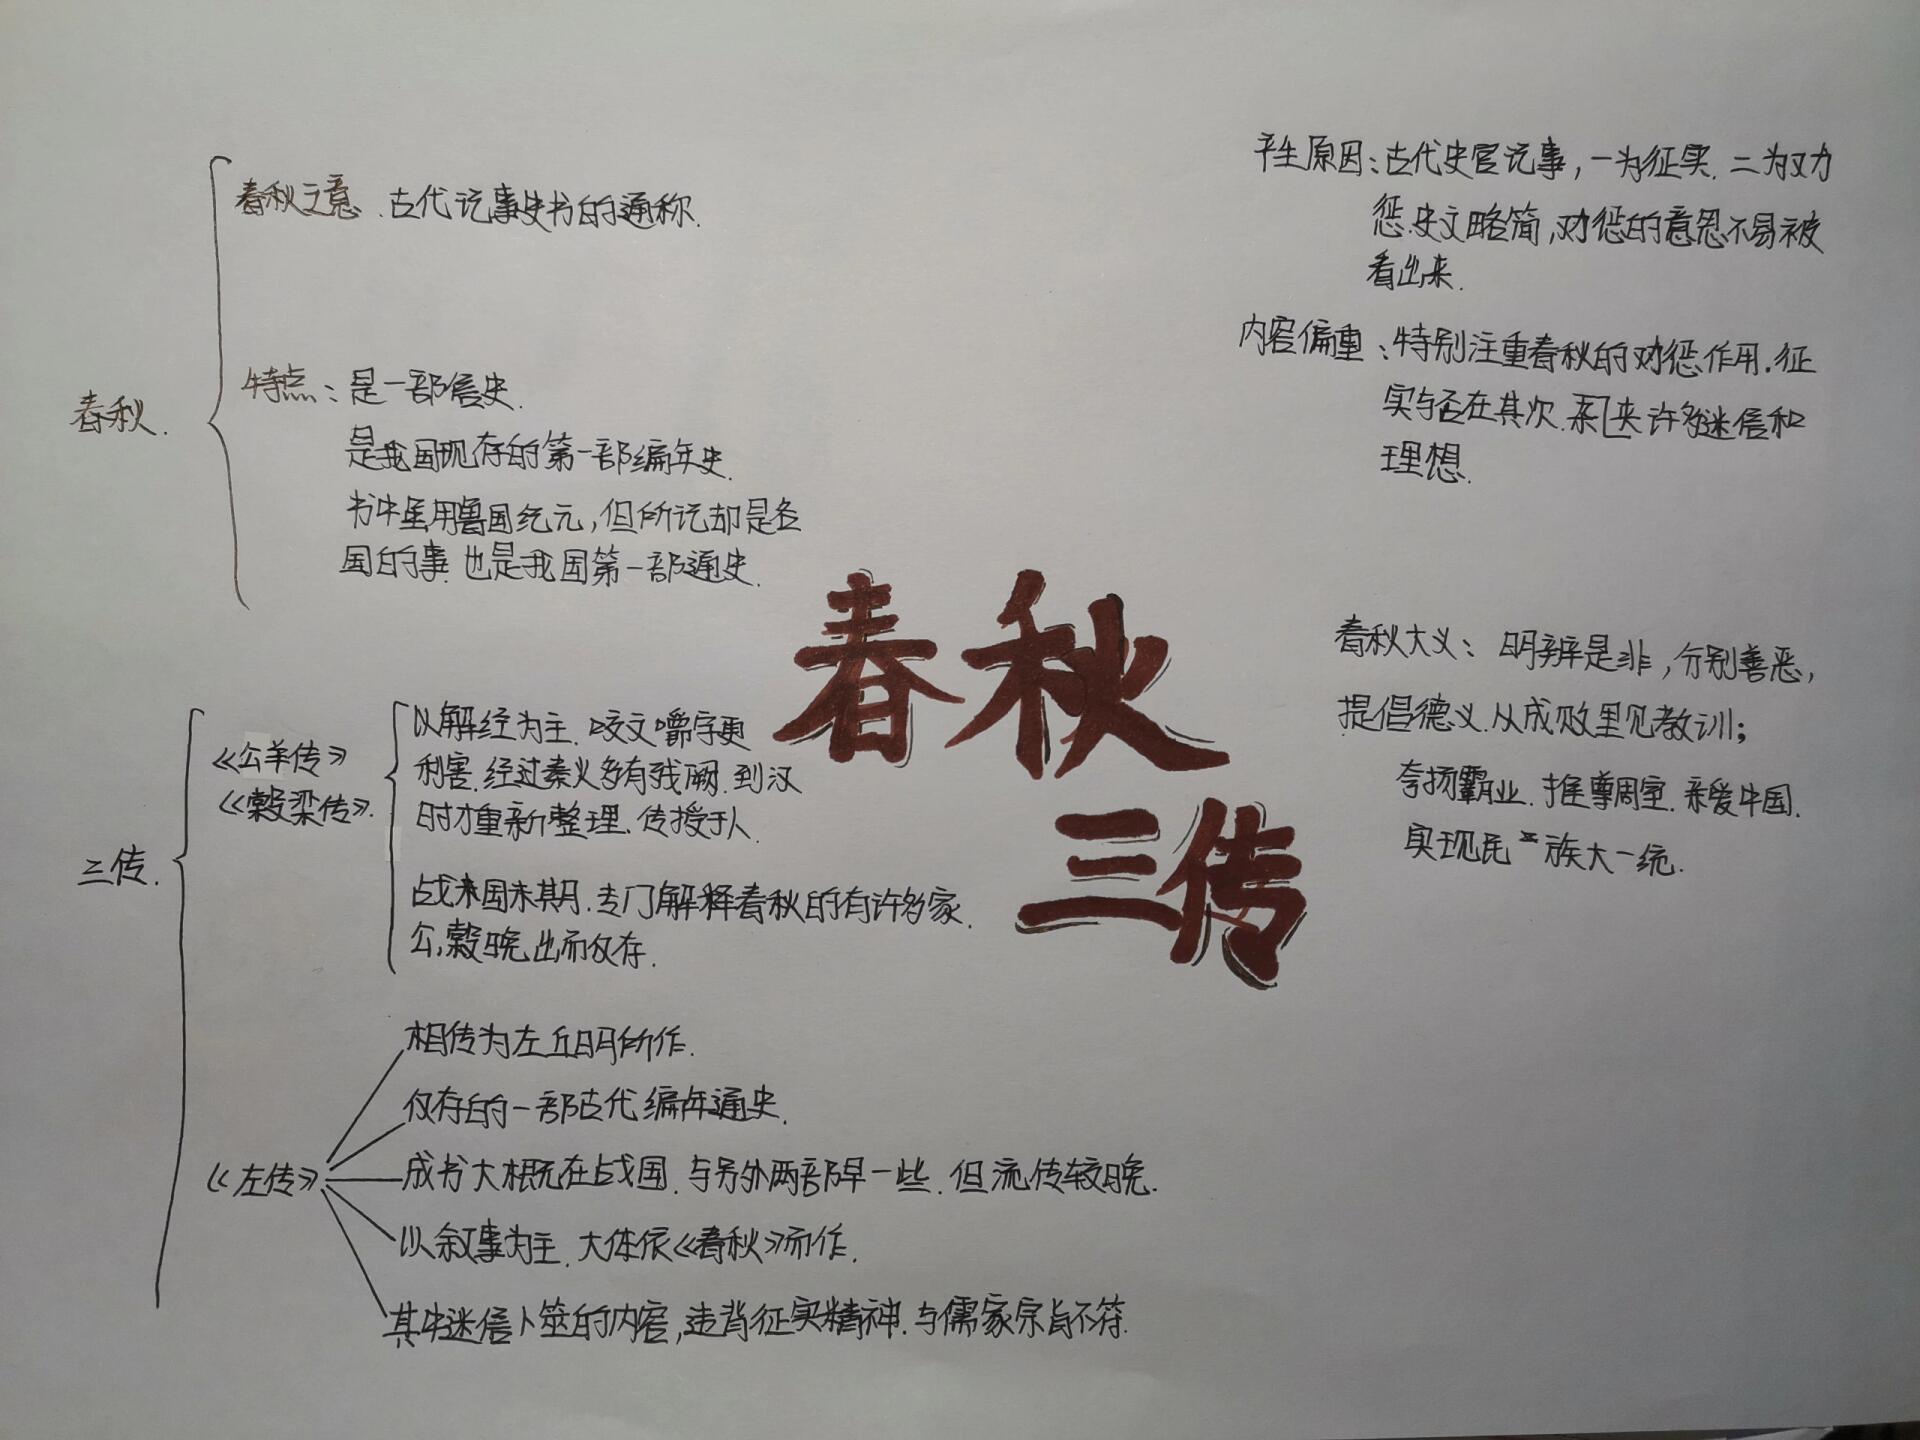 春秋
三传
春秋.
春秋之意.古代记事史书的通称.
特点：是一部信史.
是我国现存的第一部编年史.
书中虽用鲁国纪元,但所记却是各
国的事.也是我国第一部通史.
三传.
《公羊传》
《榖梁传》.
以解经为主.咬文嚼字更
利害.经过秦火多有残阙.到汉
时才重新整理.传授于人.
战末国末期.专门解释春秋的有许多家.
公,榖晚出而仅存.
《左传》
相传为左丘明所作.
仅存的一部古代编年通史.
成书大概在战国.与另外两部早一些.但流传较晚.
以叙事为主.大体依《春秋》而作.
其中迷信卜筮的内容,违背征实精神.与儒家宗旨不符.
产生原因：古代史官记事,一为征实.二为劝
惩.史文略简,劝惩的意思不易被
看出来.
内容偏重：特别注重春秋的劝惩作用.征
实与否在其次.来许多迷信和
理想.
春秋大义：明辨是非,分别善恶,
提倡德义.从成败里见教训;
夸扬霸业.推尊周室.亲爱中国.
实现民族大一统.